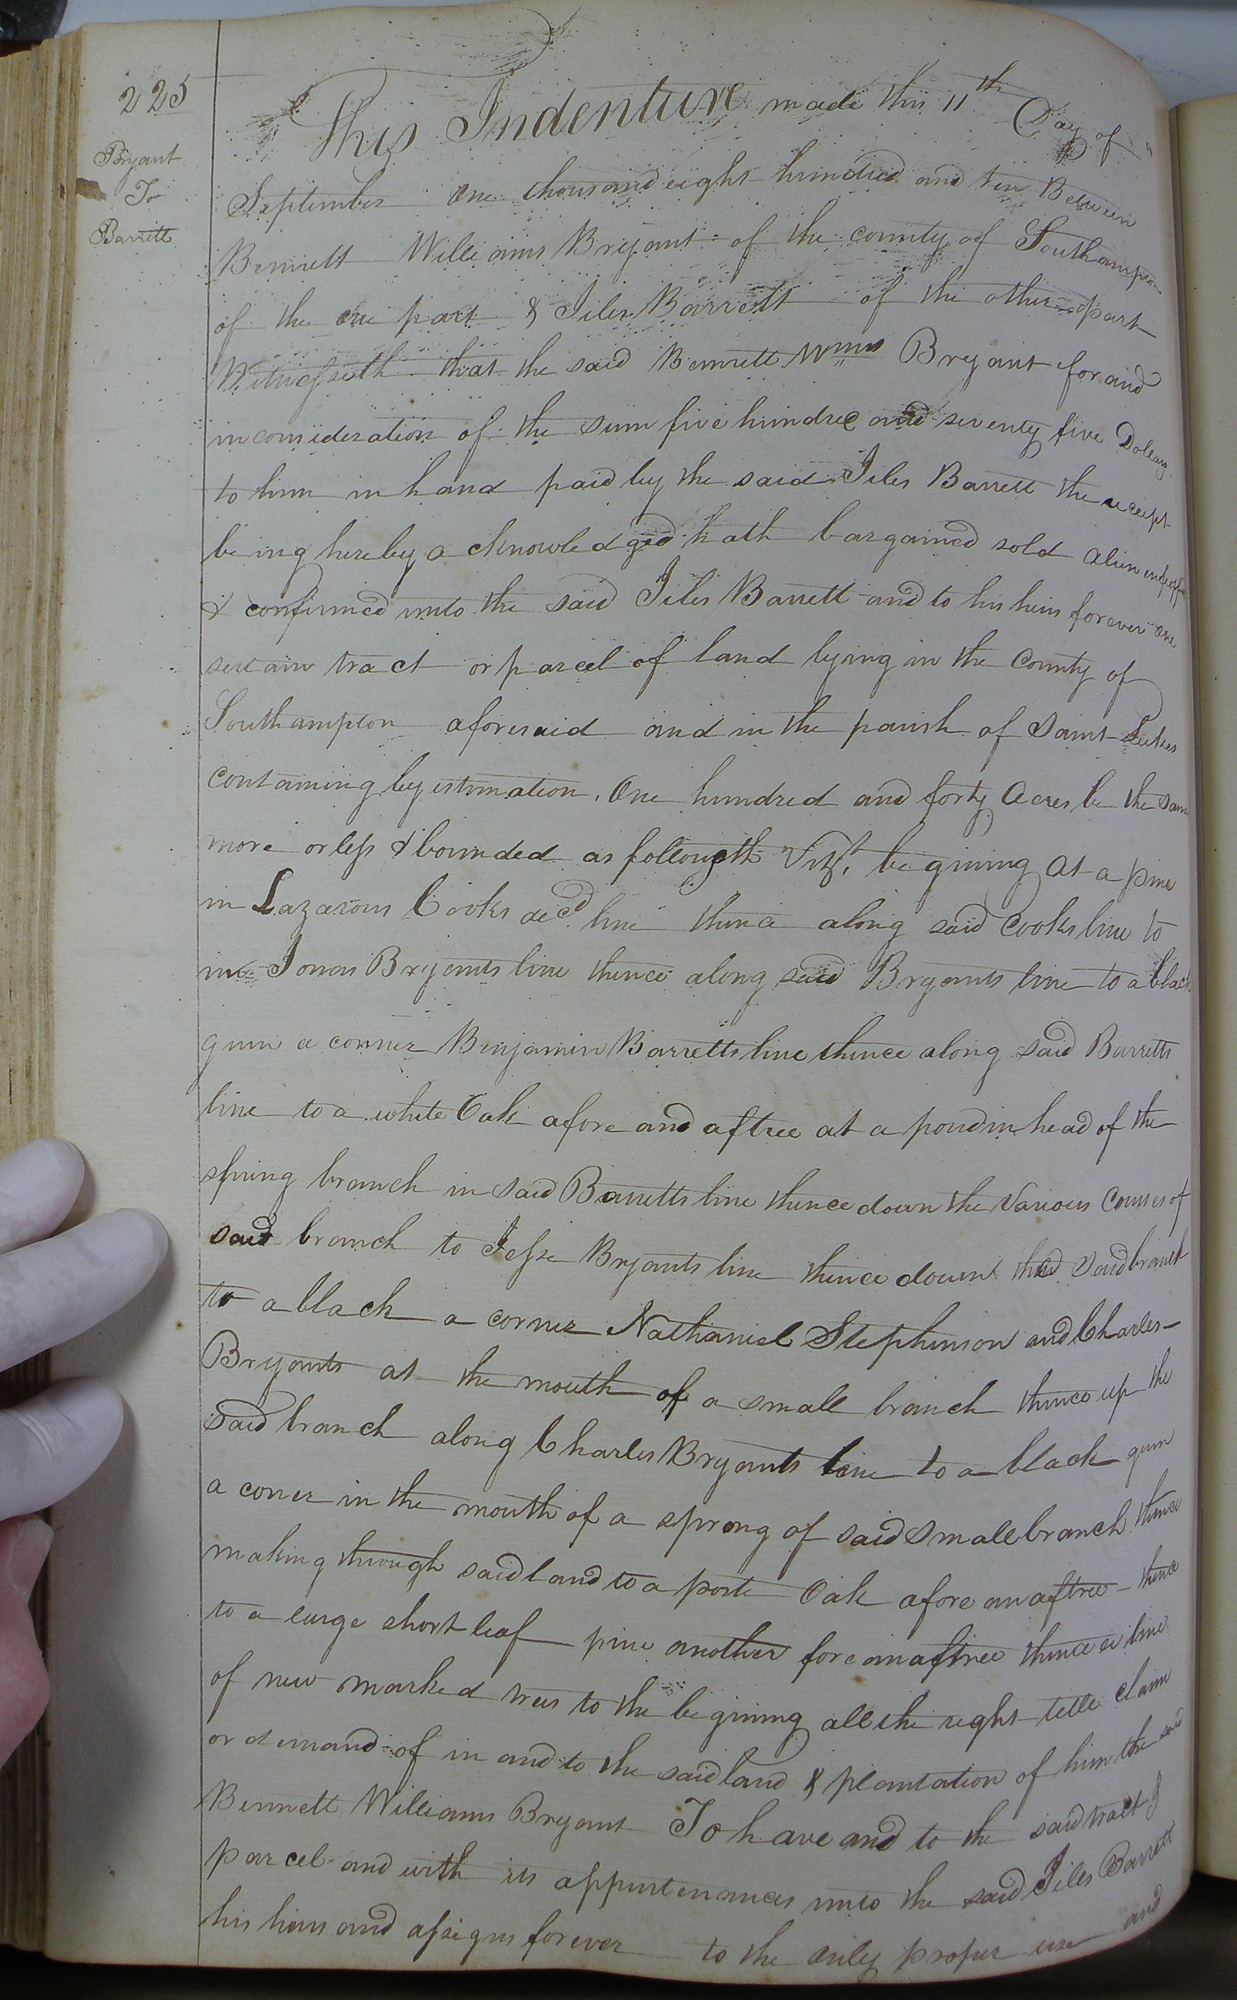 225
Bryant
To
Barrett
This Indenture made this 11th Day of
September One thousand eight hundred and ten Between
Bennett Williams Bryant of the county of Southampton
of the one part & Jiles Barrett of the other part
Witnesseth that the said Bennett Wmms Bryant for and
in consideration of the sum five hundred and seventy five Dollars
to him in hand paid by the said Jiles Barrett the receipt
being hereby acknowledged hath bargained sold alien enfeoff
& confirmed unto the said Jiles Barrett and to his heirs forever one
sertain tract or parcel of land lying in the County of
Southampton aforesaid and in the parish of Saint Lukes
containing by estimation, One hundred and forty Acres be the same
more or less & bounded as followeth Vizt, begining at a pine
in Lazarous Cooks decd line thence along said Cooks line to
in Jonas Bryants line thence along said Bryants line to a black
gum a corner Benjamin Barretts line thence along said Barretts
line to a white Oak afore and aftree at a pond in head of the
spring branch in said Barretts line thence down the Various Courses of
said branch to Jesse Bryants line thence down the said branch
to a black a corner Nathaniel Stephenson and Charles
Bryants at the mouth of a small branch thence up the
said branch along Charles Bryants line to a black gum
a coner in the mouth of a sprong of said small branch thence
making through said land to a poste Oak afore an aftree thence
to a large short leaf pine another fore an aftree thence a line
of new marked trees to the begining all the right title claim
or demand of in and to the said land & plantation of him the said
Bennett Williams Bryant To have and to the said tract &
parcel and with its appurtenances unto the said Jiles Barrett
his heirs and assigns forever to the only proper use and